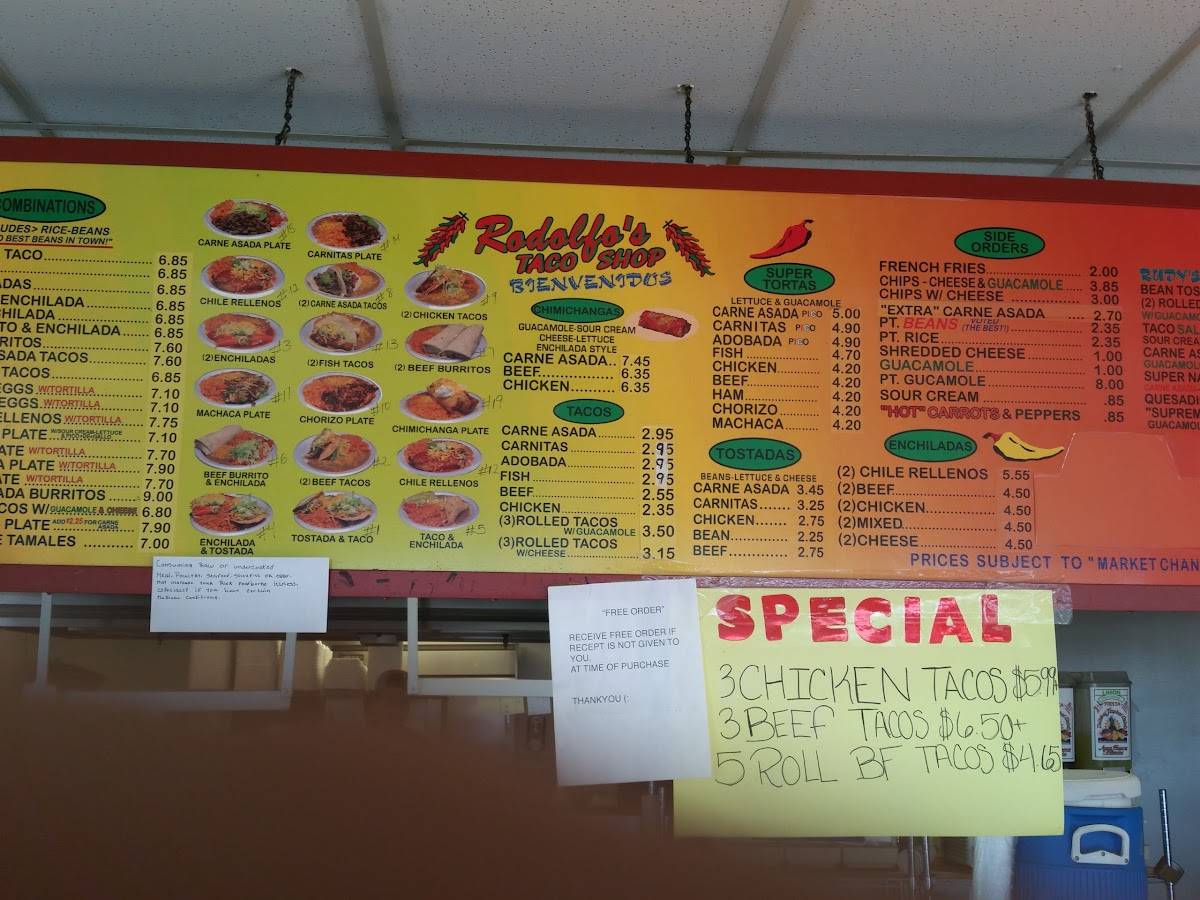 COMBINATIONS
RICE-BEANS
BEST BEANS IN TOWN!"
TACO 6.85
6.85
6.85
ENCHILADA 6.85
6.85
& ENCHILADA 6.85
7.60
TACOS 7.60
TACOS 6.85
EGGS W/TORTILLA 7.10
EGGS W/TORTILLA 7.10
W/TORTILLA 7.75
PLATE 7.10
W/TORTILLA 7.70
PLATE W/TORTILLA 7.90
W/TORTILLA 7.70
BURRITOS 9.00
W/GUACAMOLE & CHEESE 6.80
PLATE ADD $2.25 FOR CARNE ASADA 7.90
TAMALES 7.00
CARNE ASADA PLATE
CARNITAS PLATE
CHILE RELLENOS #12
(2) CARNE ASADA TACOS #8
(2) CHICKEN TACOS #9
(2) ENCHILADAS #3
(2) FISH TACOS #13
(2) BEEF BURRITOS #7
MACHACA PLATE #11
CHORIZO PLATE #10
CHIMICHANGA PLATE #19
BEEF BURRITO
& ENCHILADA #6
(2) BEEF TACOS #2
CHILE RELLENOS #12
ENCHILADA
& TOSTADA #4
TOSTADA & TACO #1
TACO &
ENCHILADA #5
Rodolfo's
TACO SHOP
BIENVENIDOS
CHIMICHANGAS
GUACAMOLE-SOUR CREAM
CHEESE-LETTUCE
ENCHILADA STYLE
CARNE ASADA.. 7.45
BEEF 6.35
CHICKEN 6.35
TACOS
CARNE ASADA 2.95
CARNITAS 2.95
ADOBADA 2.95
FISH 2.95
BEEF 2.55
CHICKEN 2.35
(3)ROLLED TACOS
W/GUACAMOLE 3.50
(3)ROLLED TACOS
W/CHEESE 3.15
SUPER
TORTAS
LETTUCE & GUACAMOLE
CARNE ASADA PICO 5.00
CARNITAS PICO 4.90
ADOBADA PICO 4.90
FISH 4.70
CHICKEN 4.20
BEEF 4.20
HAM 4.20
CHORIZO 4.20
MACHACA 4.20
TOSTADAS
BEANS-LETTUCE & CHEESE
CARNE ASADA 3.45
CARNITAS 3.25
CHICKEN 2.75
BEAN 2.25
BEEF 2.75
SIDE
ORDERS
FRENCH FRIES 2.00
CHIPS - CHEESE & GUACAMOLE 3.85
CHIPS W/ CHEESE 3.00
"EXTRA" CARNE ASADA 2.70
PT. BEANS YUM! (THE BEST!) 2.35
PT. RICE 2.35
SHREDDED CHEESE 1.00
GUACAMOLE 1.00
PT. GUCAMOLE 8.00
SOUR CREAM .85
"HOT" CARROTS & PEPPERS .85
ENCHILADAS
(2) CHILE RELLENOS 5.55
(2)BEEF 4.50
(2)CHICKEN 4.50
(2)MIXED 4.50
(2)CHEESE 4.50
PRICES SUBJECT TO "MARKET CHAN
BEAN TOS
(2) ROLLE
W/GUACAM
TACO SAL
SOUR CREA
CARNE AS
SUPER NA
QUESADI
"SUPREM
GUACAMOL
Consuming Raw or undercooked
Meat, Poultry, Seafood, Shellfish or eggs.
may increase your Risk foodborne illness,
especially if you have certain
Medical conditions.
"FREE ORDER"
RECEIVE FREE ORDER IF
RECEPT IS NOT GIVEN TO
YOU.
AT TIME OF PURCHASE
THANKYOU (:
SPECIAL
3 CHICKEN TACOS $5.99+
3 BEEF TACOS $6.50+
5 ROLL BF TACOS $4.65